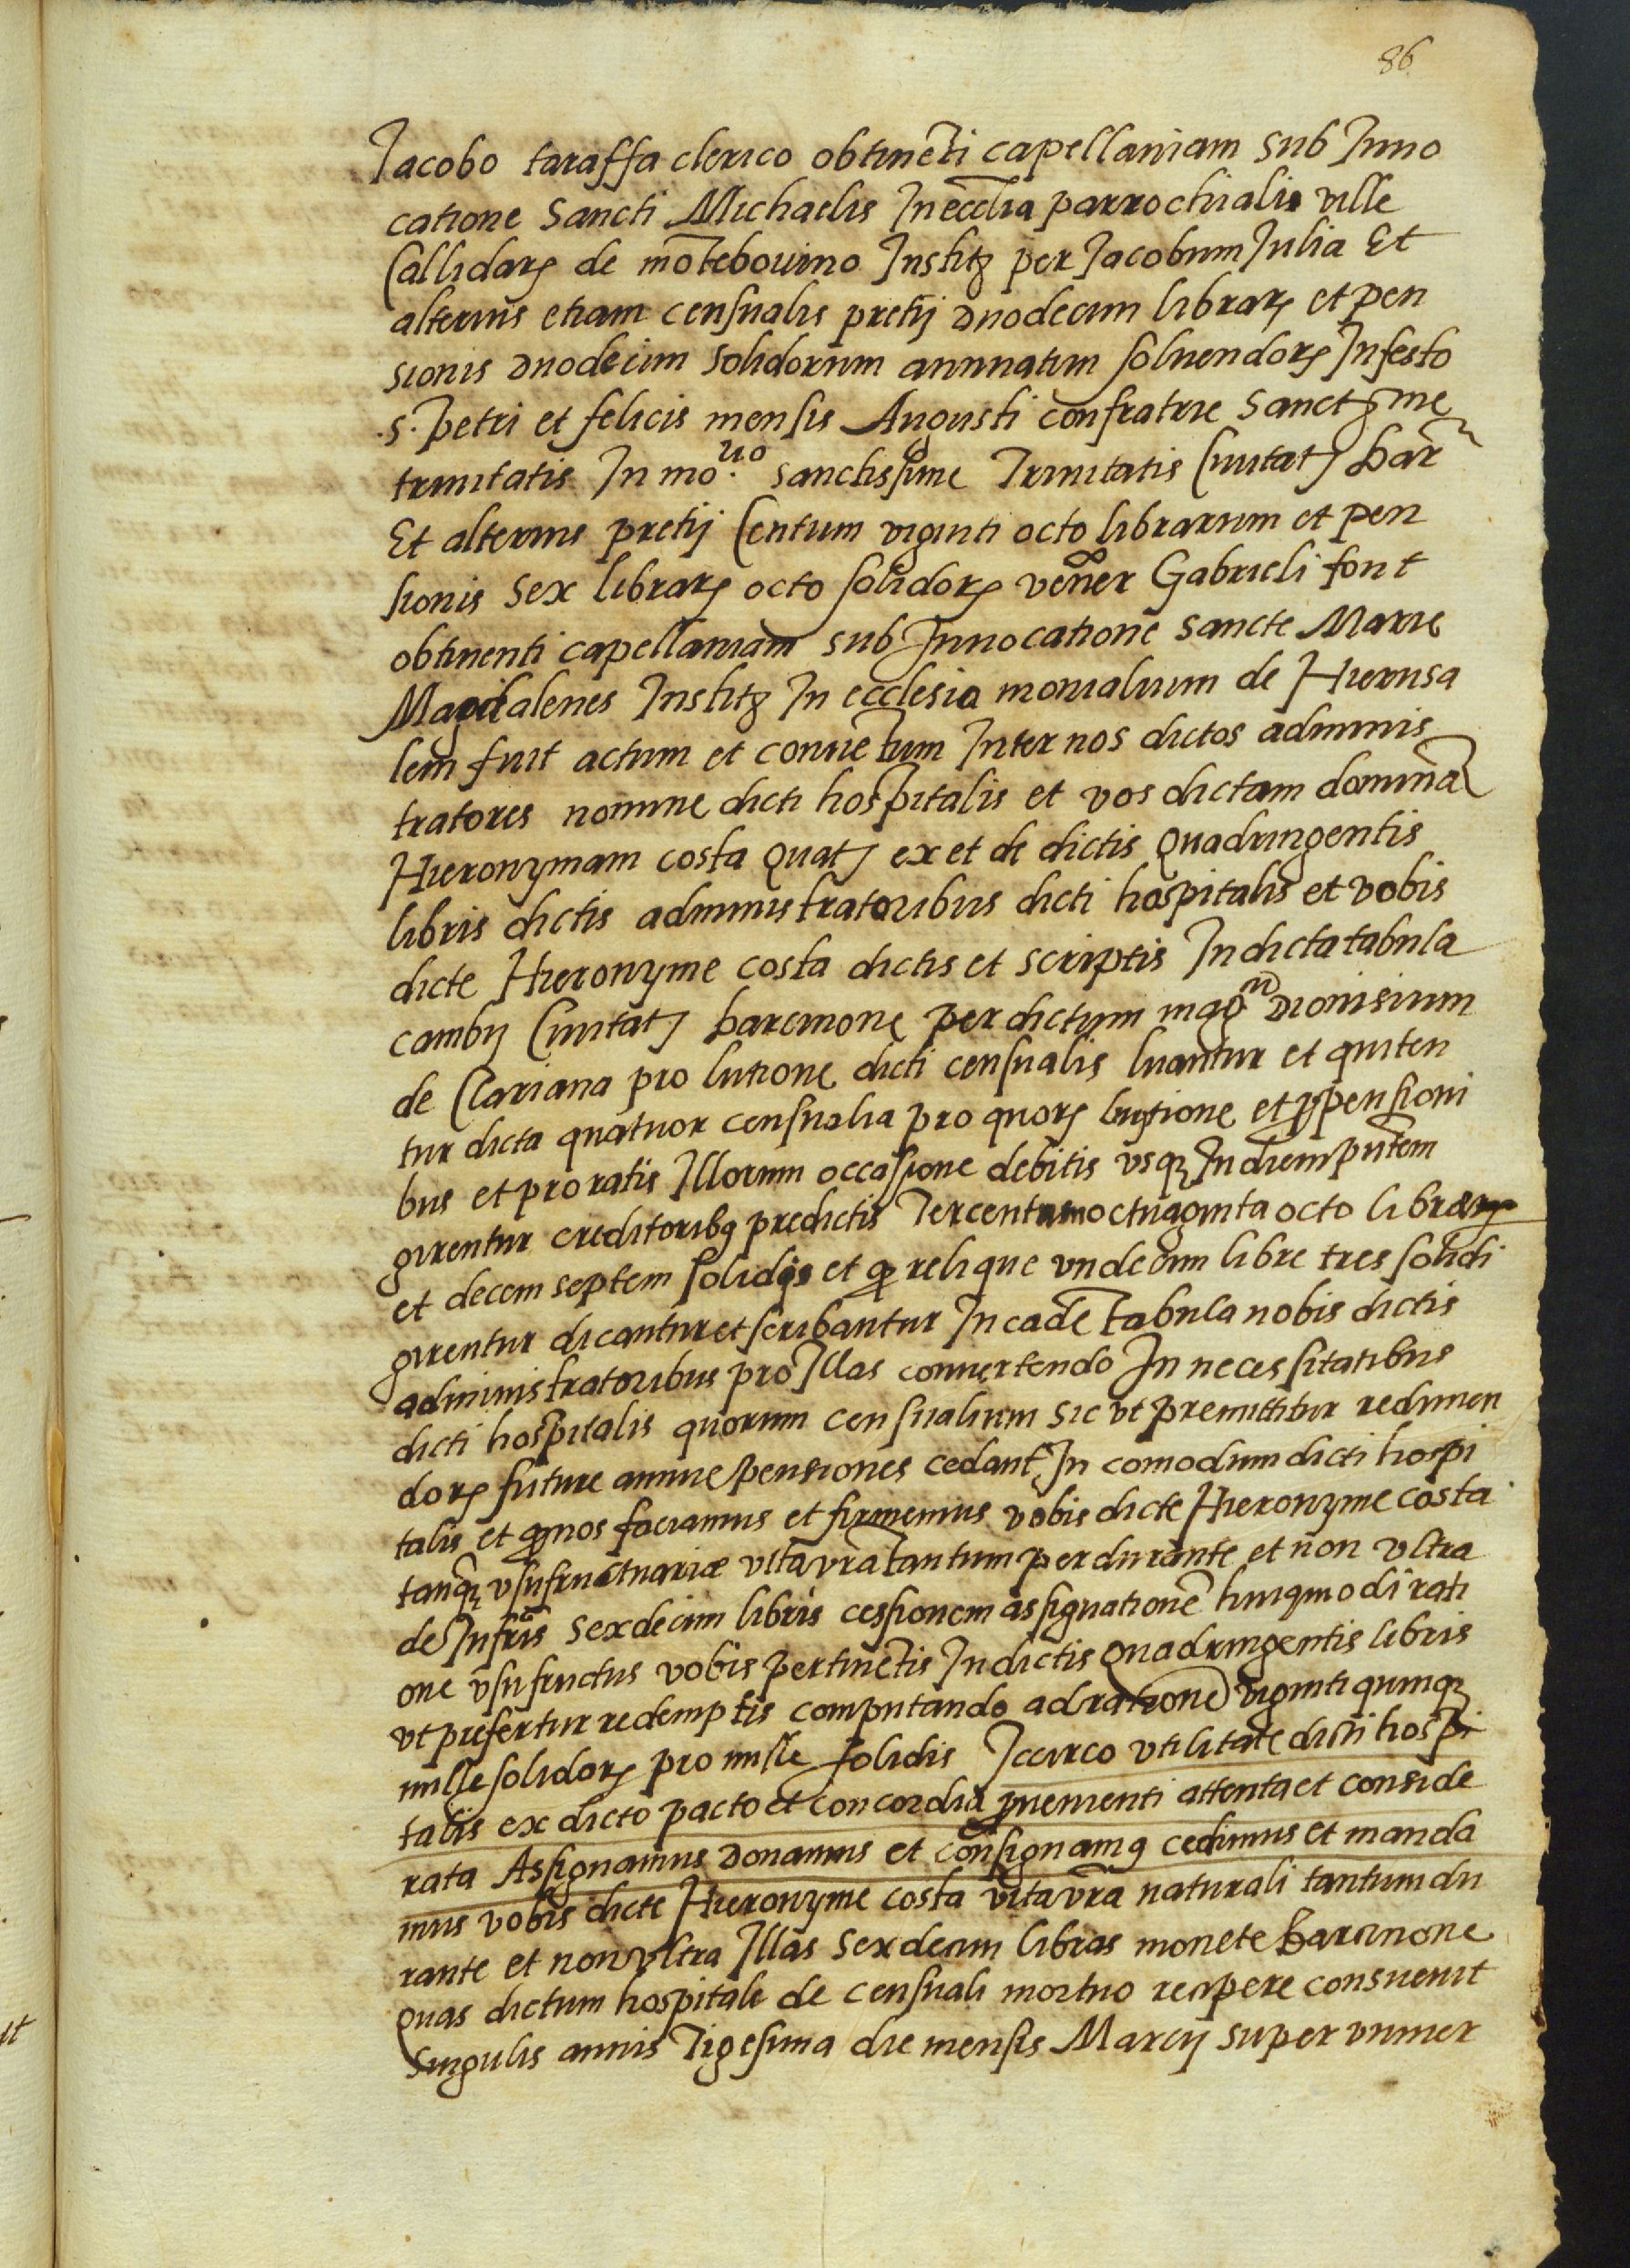 86
Jacobo taraffa clerico obtinēti capellaniam sub Inuo
catione Sancti Michaelis In ecclīa parrochialis ville
Callidarꝝ de mōtebouino Institꝫ per Jacobum Julia Et
alterius etiam censualis pretij duodecim librarꝝ et pen
sionis duodecim solidorum annuatim soluendorꝝ In festo
.s. petri et felicis mensis Augusti confratrie Sanctꝫme
trinitatis In mo.rio sanctissime Trinitatis Ciuitatꝭ bar̄
Et alterius pretij Centum viginti octo librarum et pen
sionis sex librarꝝ octo solidorꝝ vener Gabrieli font
obtinenti capellaniam sub Inuocatione sancte Marie
Magdalenes Institꝫ In ecclesia monialium de Hierusa
lem fuit actum et conuētum Inter nos dictos adminis
tratores nomine dicti hospitalis et vos dictam dominā
Hieronymam costa Quatꝭ ex et de dictis Quadringentis
libris dictis administratoribus dicti hospitalis et vobis
dicte Hieronyme costa dictis et scriptis In dicta tabula
cambij Ciuitatꝭ barcinone per dictum magᶜᵘ Dionisium
de Clariana pro lutione dicti censualis luantur et quiten
tur dicta quatuor censualia pro quorꝝ luitione et ꝓ pensioni
bus et pro ratis Illorum occasione debitis vsqꝫ In diem pn̄tem
girentur creditoribꝰ predictis Tercentum octuaginta octo librarꝝ
et decem septem solidis et ꝙ relique vndecim libre tres solidi
girentur dicantur et scribantur In eadē tabula nobis dictis
administratoribus pro Illas conuertendo In necessitatibus
dicti hospitalis quorum censualium sic vt premittitur redimen
dorꝝ future annue pensiones cedant In comodum dicti hospi
talis et ꝙ nos faciamus et firmemus vobis dicte Hieronyme costa
tanqꝫ vsufructuarie vita vrā tantum perdurante et non vltra
de Infrīs sexdecim libris cessionem assignationē huiqmodi rati
one vsufructus vobis pertinētis In dictis Quadringentis libris
vt prefertur redemptis computando ad rationē viginti quinqꝫ
mille solidorꝝ pro mille solidis Iccirco vtilitate dicti hospi
talis ex dicto pacto et concordia prementi attenta et conside
rata Assignamus Donamus et consignamꝰ cedimus et manda
mus vobis dicte Hieronyme costa vita vrā naturali tantum du
rante et non vltra Illas sexdecim libras monete barcinone
quas dictum hospitale de censuali mortuo recipere consueuit
singulis annis Tigesima die mensis Marcij super vniuer